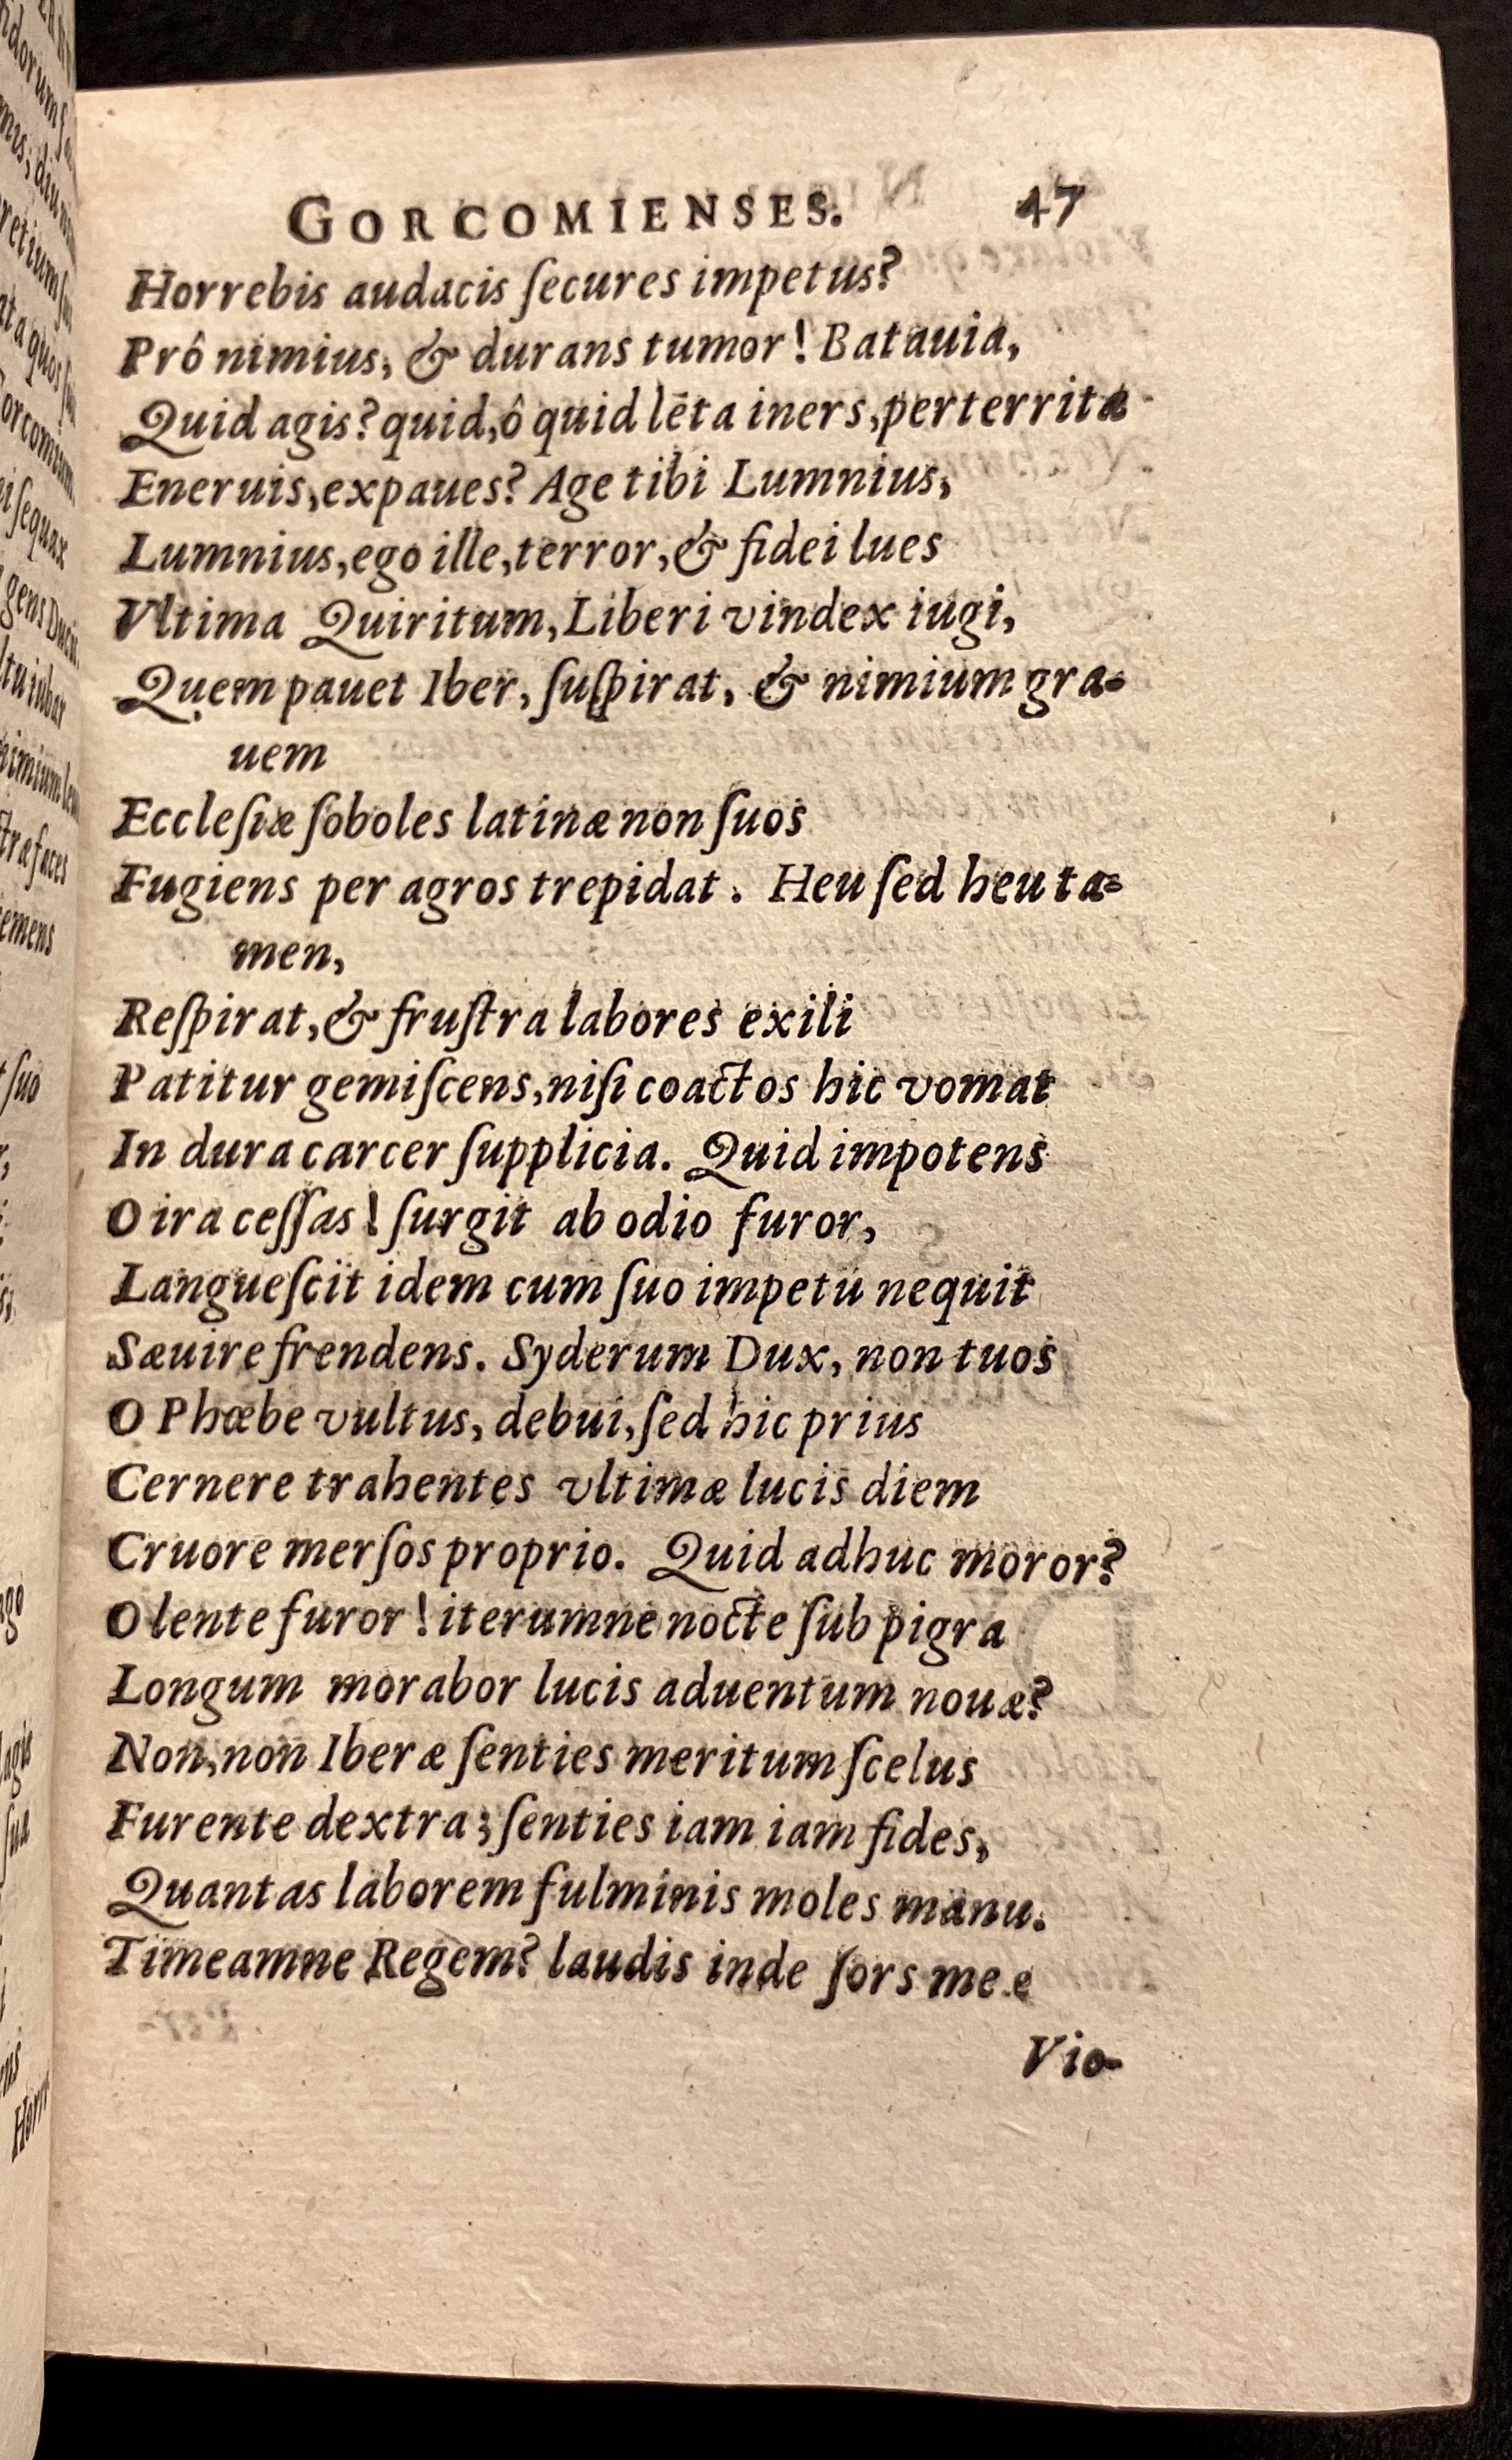 GORCOMIENSES. 47
Horrebis audacis ſecures impetus?
Prô nimius, & durans tumor! Batauia,
Quid agis? quid, ô quid lēta iners, perterrita
Eneruis, expaues? Age tibi Lumnius,
Lumnius, ego ille, terror, & fidei lues
Vltima Quiritum, Liberi vindex iugi,
Quem pauet Iber, ſuſpirat, & nimium gra-
uem
Eccleſiæ ſoboles latinæ non ſuos
Fugiens per agros trepidat. Heu ſed heu ta-
men,
Reſpirat, & fruſtra labores exili
Patitur gemiſcens, niſi coactos hic vomat
In dura carcer ſupplicia. Quid impotens
O ira ceſſas! ſurgit ab odio furor,
Langueſcit idem cum ſuo impetu nequit
Sæuire frendens. Syderum Dux, non tuos
O Phœbe vultus, debui, ſed hic prius
Cernere trahentes vltimæ lucis diem
Cruore merſos proprio. Quid adhuc moror?
O lente furor! iterumne nocte ſub pigra
Longum morabor lucis aduentum nouæ?
Non, non Iberæ ſenties meritum ſcelus
Furente dextra; ſenties iam iam fides,
Quantas laborem fulminis moles manu.
Timeamne Regem? laudis inde ſors meæ
Vio-